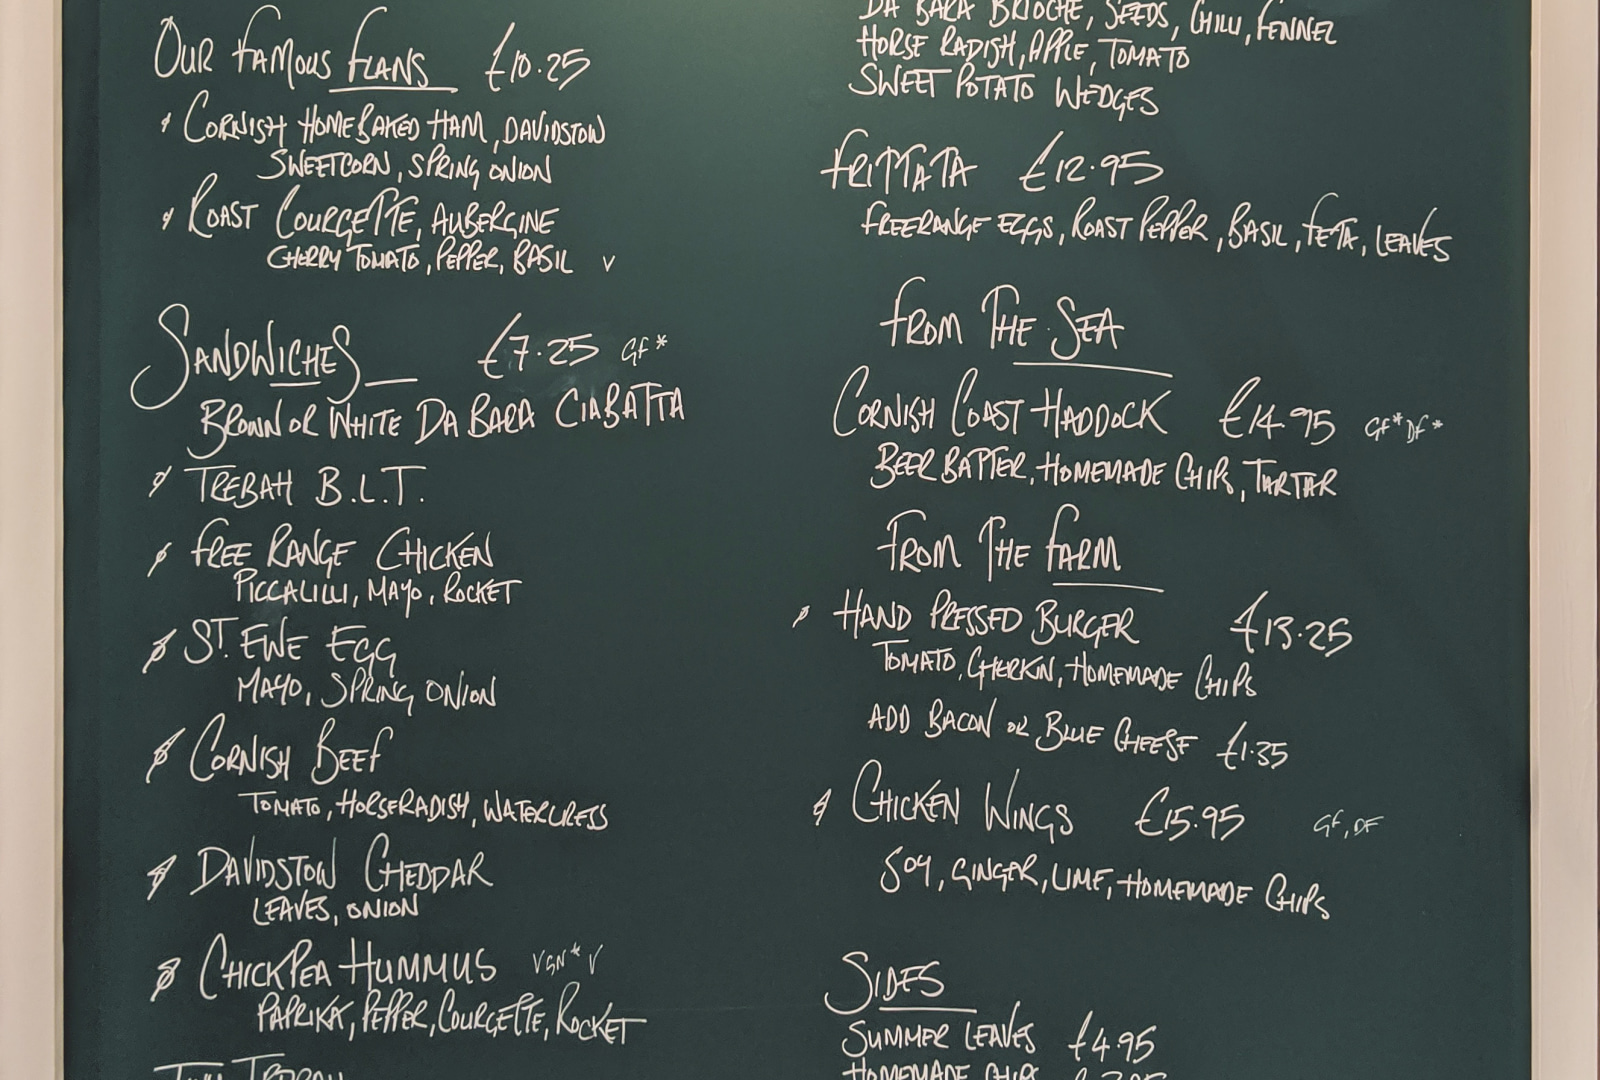 OUR FAMOUS FLANS £10.25
CORNISH HOMEBAKED HAM, DAVIDSTOW
SWEETCORN, SPRING ONION
ROAST COURGETTE, AUBERGINE
CHERRY TOMATO, PEPPER, BASIL V
SANDWICHES £7.25 GF*
BROWN OR WHITE DA BARA CIABATTA
TREBAH B.L.T.
FREE RANGE CHICKEN
PICCALILLI, MAYO, ROCKET
ST. EWE EGG
MAYO, SPRING ONION
CORNISH BEEF
TOMATO, HORSERADISH, WATERCRESS
DAVIDSTOW CHEDDAR
LEAVES, ONION
CHICKPEA HUMMUS VGN* V
PAPRIKA, PEPPER, COURGETTE, ROCKET
DA BARA BRIOCHE, SEEDS, CHILLI, FENNEL
HORSE RADISH, APPLE, TOMATO
SWEET POTATO WEDGES
FRITTATA £12.95
FREERANGE EGGS, ROAST PEPPER, BASIL, FETA, LEAVES
FROM THE SEA
CORNISH COAST HADDOCK £14.95 GF* DF*
BEER BATTER, HOMEMADE CHIPS, TARTAR
FROM THE FARM
HAND PRESSED BURGER £13.25
TOMATO, GHERKIN, HOMEMADE CHIPS
ADD BACON OR BLUE CHEESE £1.35
CHICKEN WINGS £15.95 GF, DF
SOY, GINGER, LIME, HOMEMADE CHIPS
SIDES
SUMMER LEAVES £4.95
HOMEMADE CHIPS